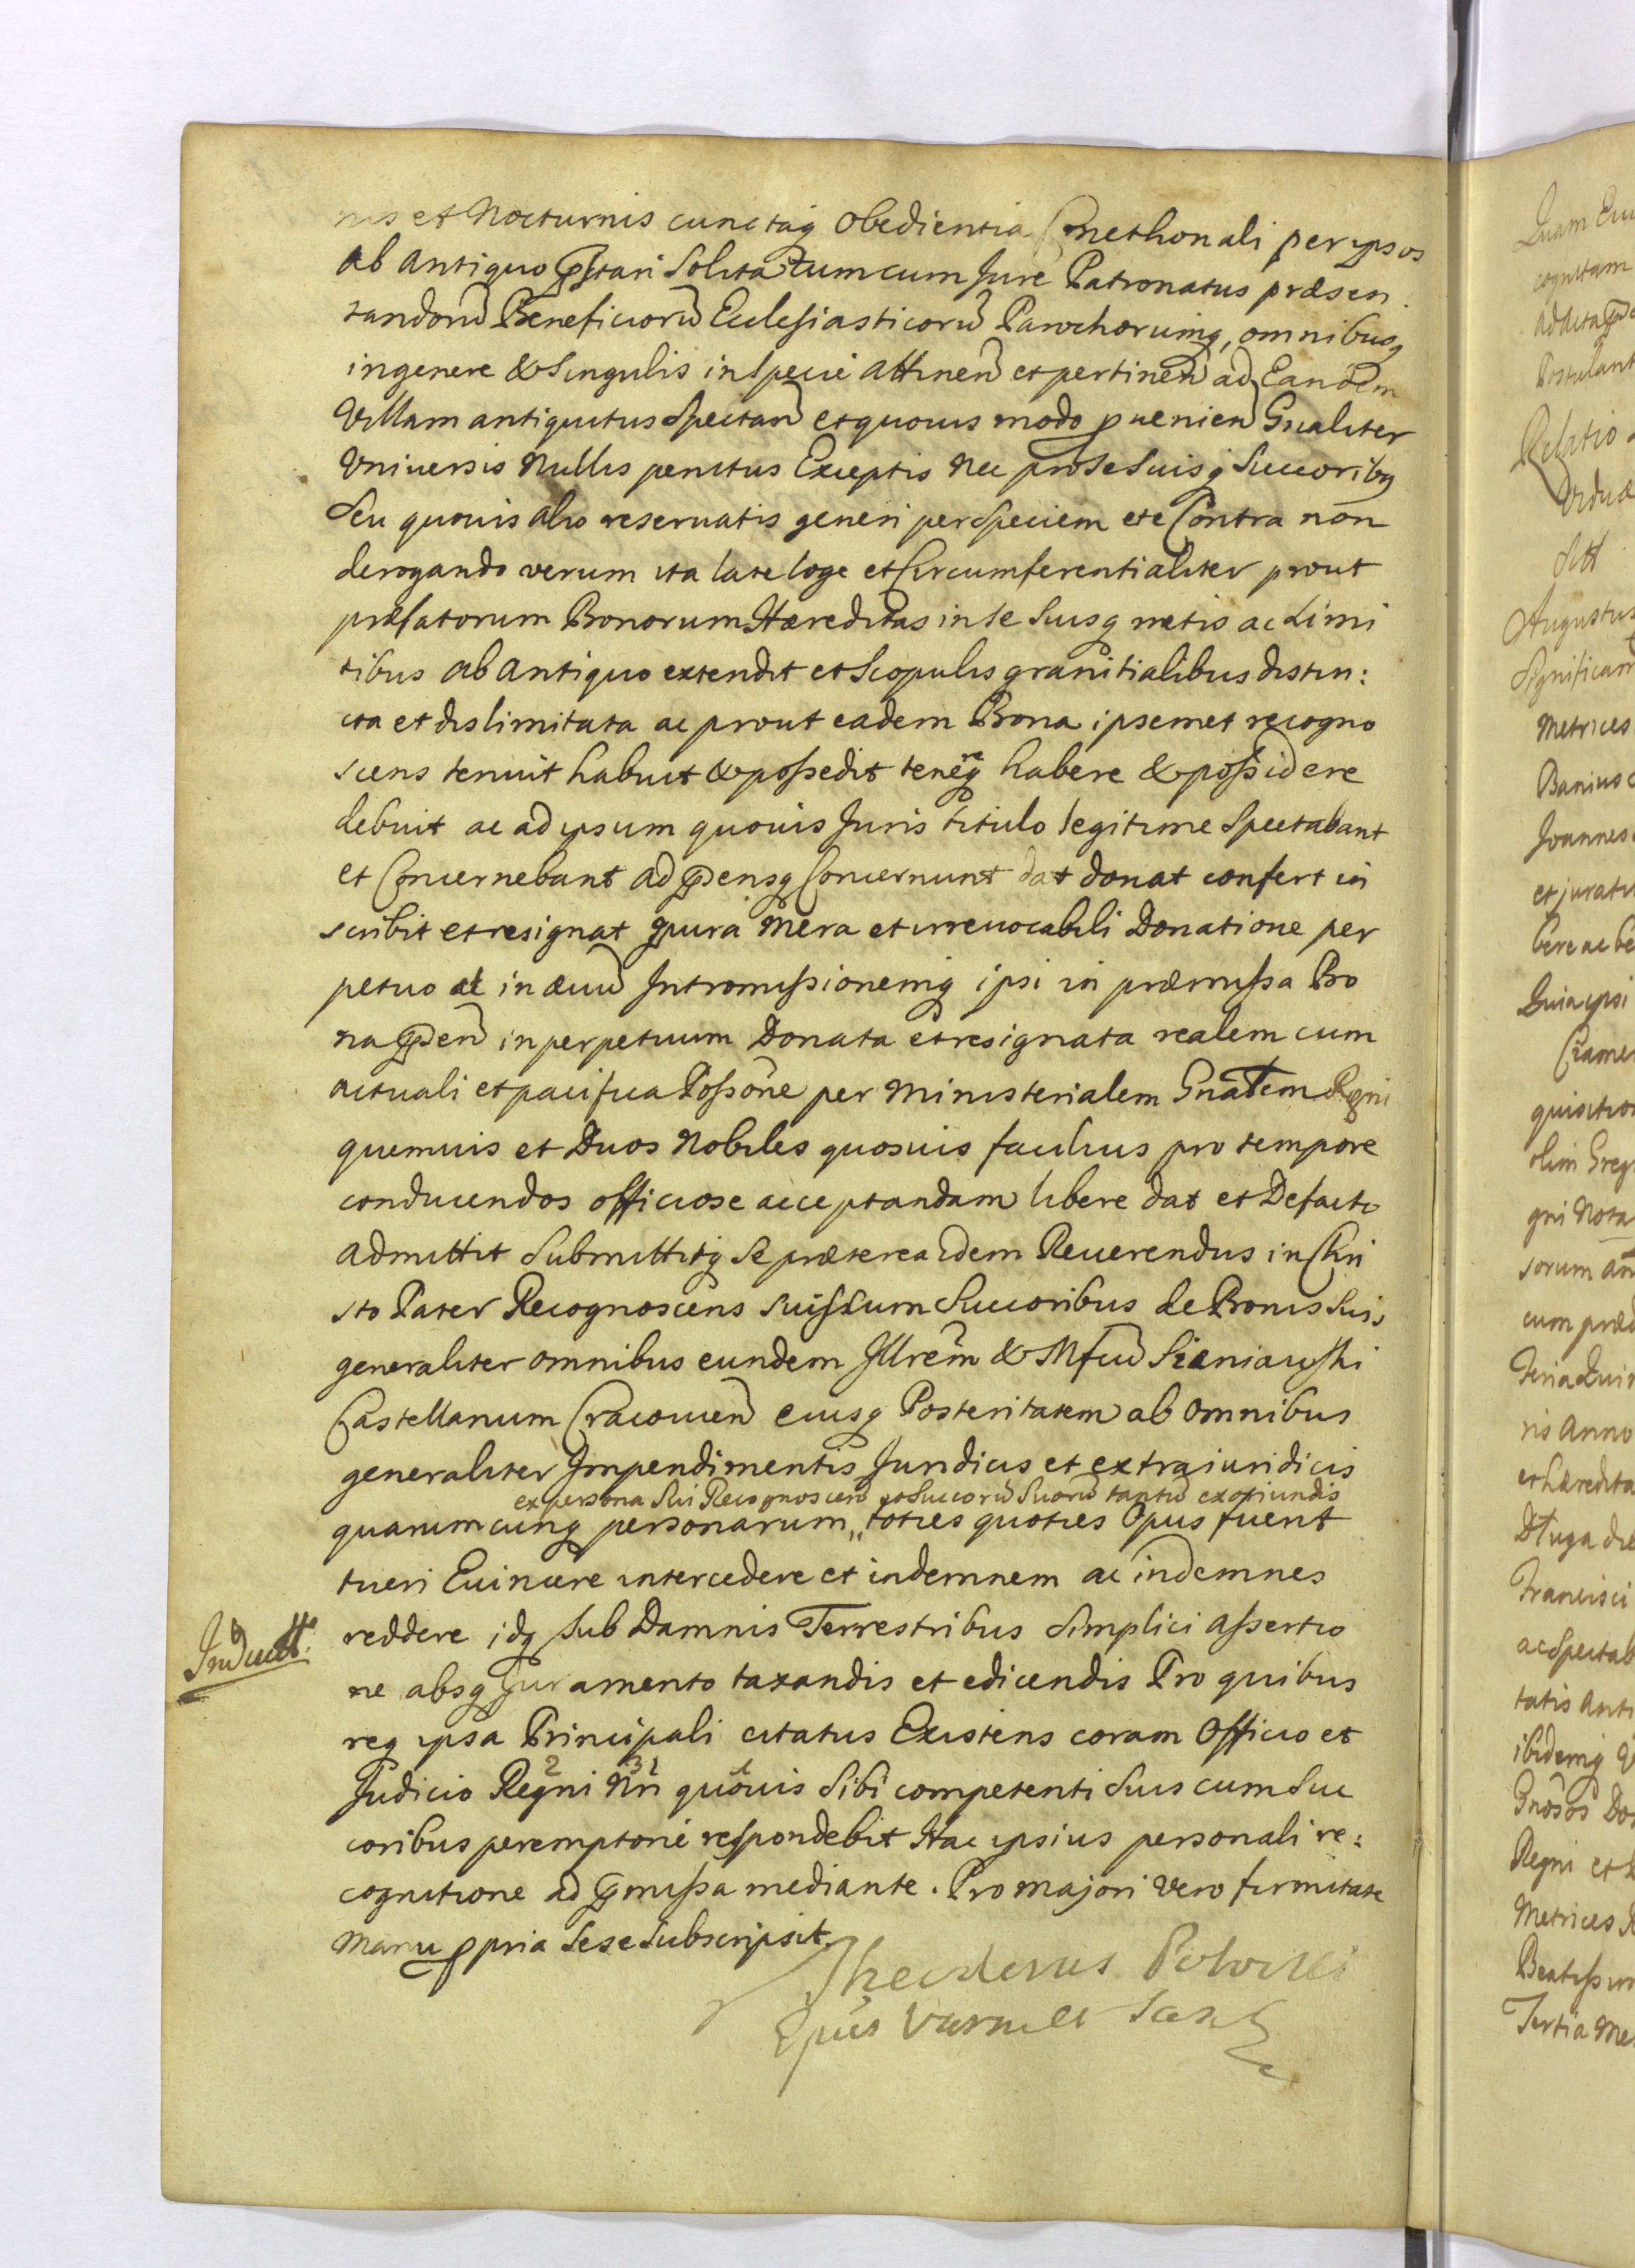 nis et Nocturnis cunctaq obedientia Cmethonali per ipsos
ab antiquo pstari Solita tum cum Jure Patronatus præsen
tandorũ Beneficiorũ Ecclesiasticorũ Parochorumq, omnibusq
in genere & Singulis in Specie attinen̄ et pertinen̄ ad Eandem
Villam antiquitus Spectan̄ et quouis modo puenien̄ Gnaliter
Vniuersis Nullis penitus Exceptis Nec pro Se Suisq Succoribq
Seu quouis alio reseruatis generi per Speciem et e Contra non
derogando verum ita late loge et Circumferentialiter prout
præfatorum Bonorum Hæreditas in se Suisq metis ac Limi
tibus ab antiquo extendit et Scopulis granitialibus distin:
cta et dislimitata ac prout eadem Bona ipsemet recogno
scens tenuit habuit & possedit tenereq habere & possidere
debuit ac ad ipsum quouis Juris titulo legitime Spectabant
et Concernebant ad psensq Concernunt dat donat confert in
scribit et resignat q pura Mera et irreuocabili Donatione per
petuo et in æuũ Intromissionemq ipsi in præmissa Bo
na psen̄ in perpetuum Donata et resignata realem cum
actuali et pacifica Possõne per Ministerialem Gnãlem Rgni
quemuis et Duos Nobiles quosuis facilius pro tempore
conducendos officiose acceptandam libere dat et Defacto
admittit Submittitq Se præterea idem Reuerendus in Chri
sto Pater Recognoscens suis cum Succoribus de Bonis Suis
generaliter omnibus eundem Illrẽm & Mfcũ Sieniawski
Castellanum Cracouien̄ eiusq Posteritatem ab omnibus
generaliter Impendimentis Juridicis et extraiuridicis
ex persona Sui Recognoscen̄ et Succorũ Suorũ tantũ exotiundis
quarumcunq personarum,, toties quoties Opus fuerit
tueri Euincere intercedere et indemnem ac indemnes
Induct.
reddere idq Sub Damnis Terrestribus Simplici assertio
ne absq Juramento taxandis et edicendis Pro quibus
req ipsa Principali citatus Existens coram Officio et
Judicio Regni Nri quouis Sibi competenti Suis cum Suc
coribus peremptorie respondebit Hac ipsius personali re:
cognitione ad pmissa mediante. Pro majori vero firmitate
manu ppria Sese Subscripsit.
Theodorus Potocki
Epũs Varmi et Samb